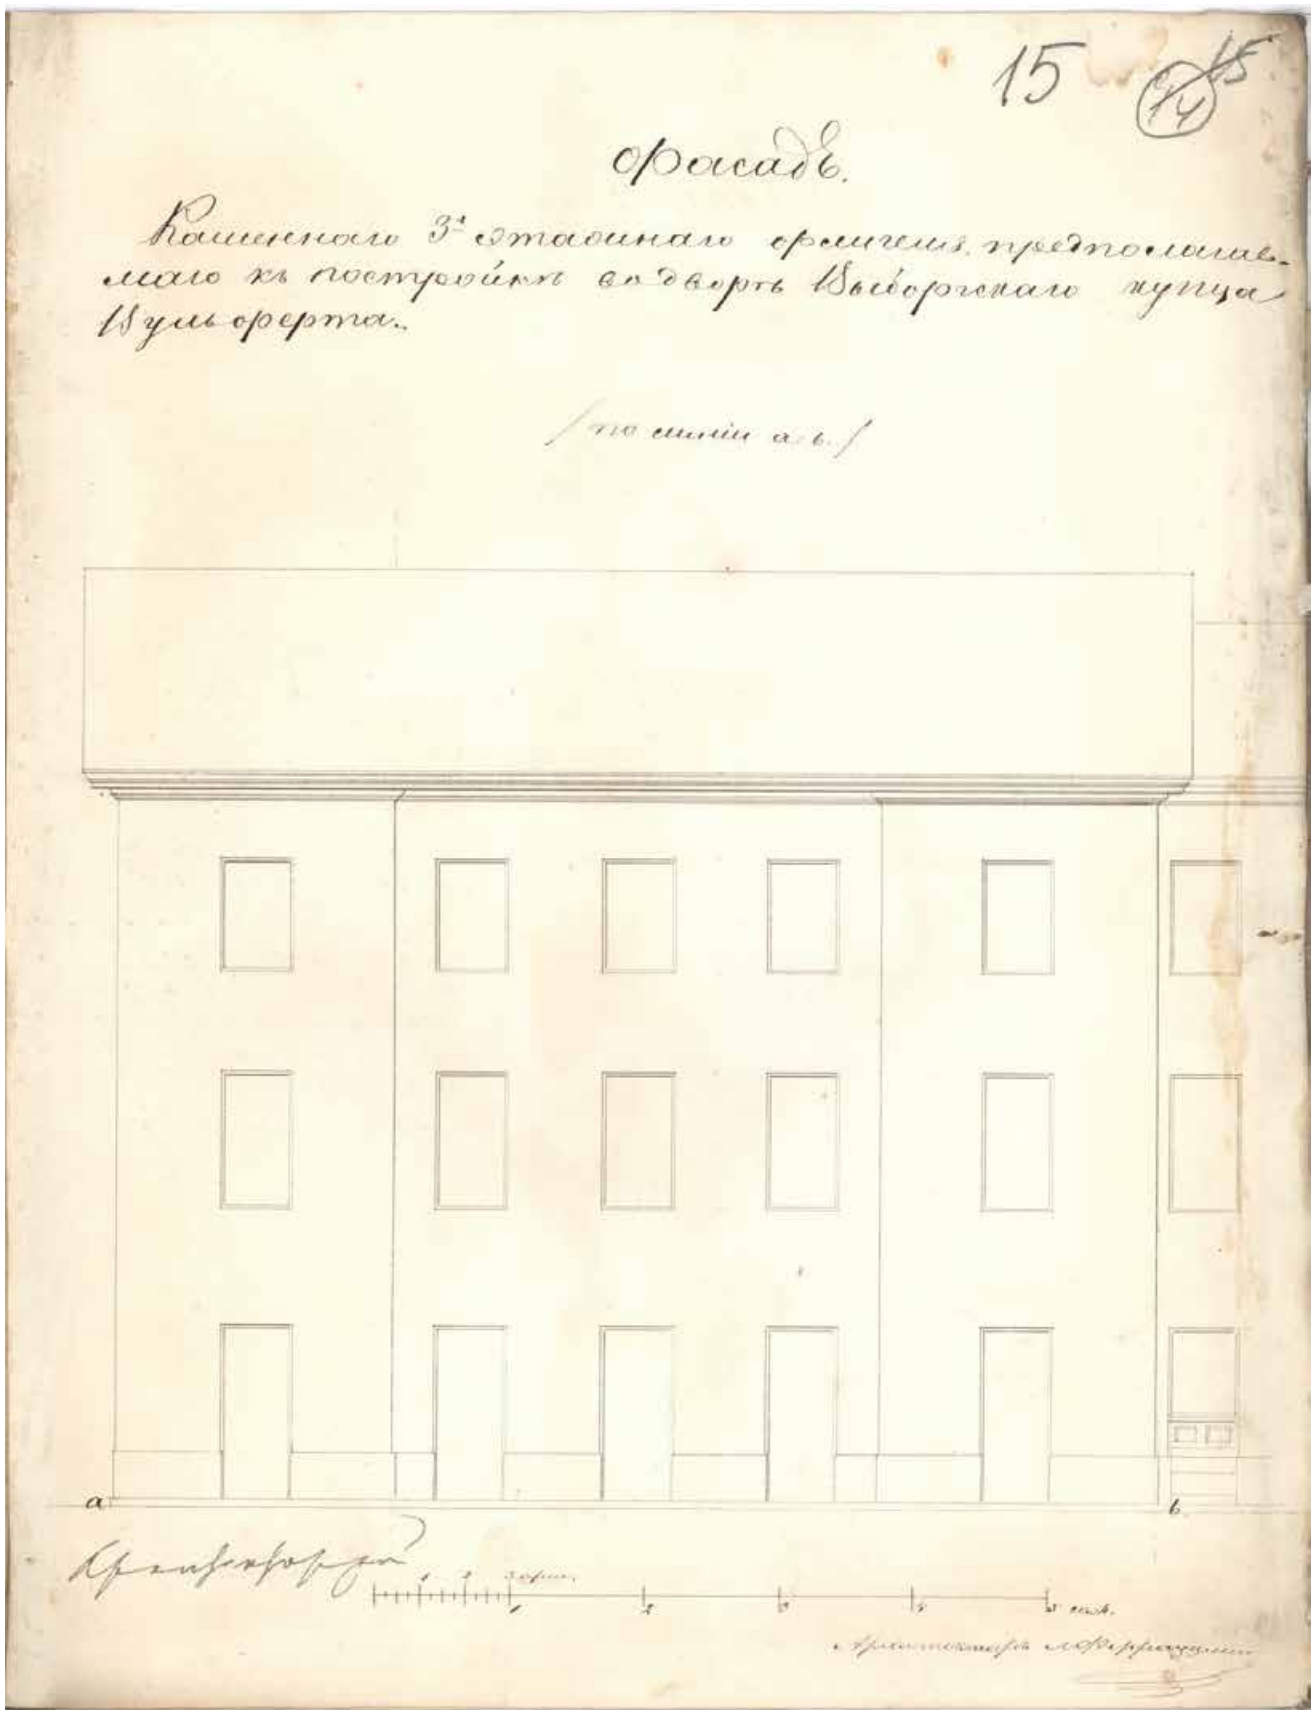 15
14 15
Фасадъ.
Каменнаго 3х этажнаго флигеля, предполагае-
маго къ постройкѣ во дворѣ Выборгскаго купца
Вульферта.
/ по линіи a b. /
a
b
1 2 3 арш.
1 2 3 4 5 саж.
Архитекторъ